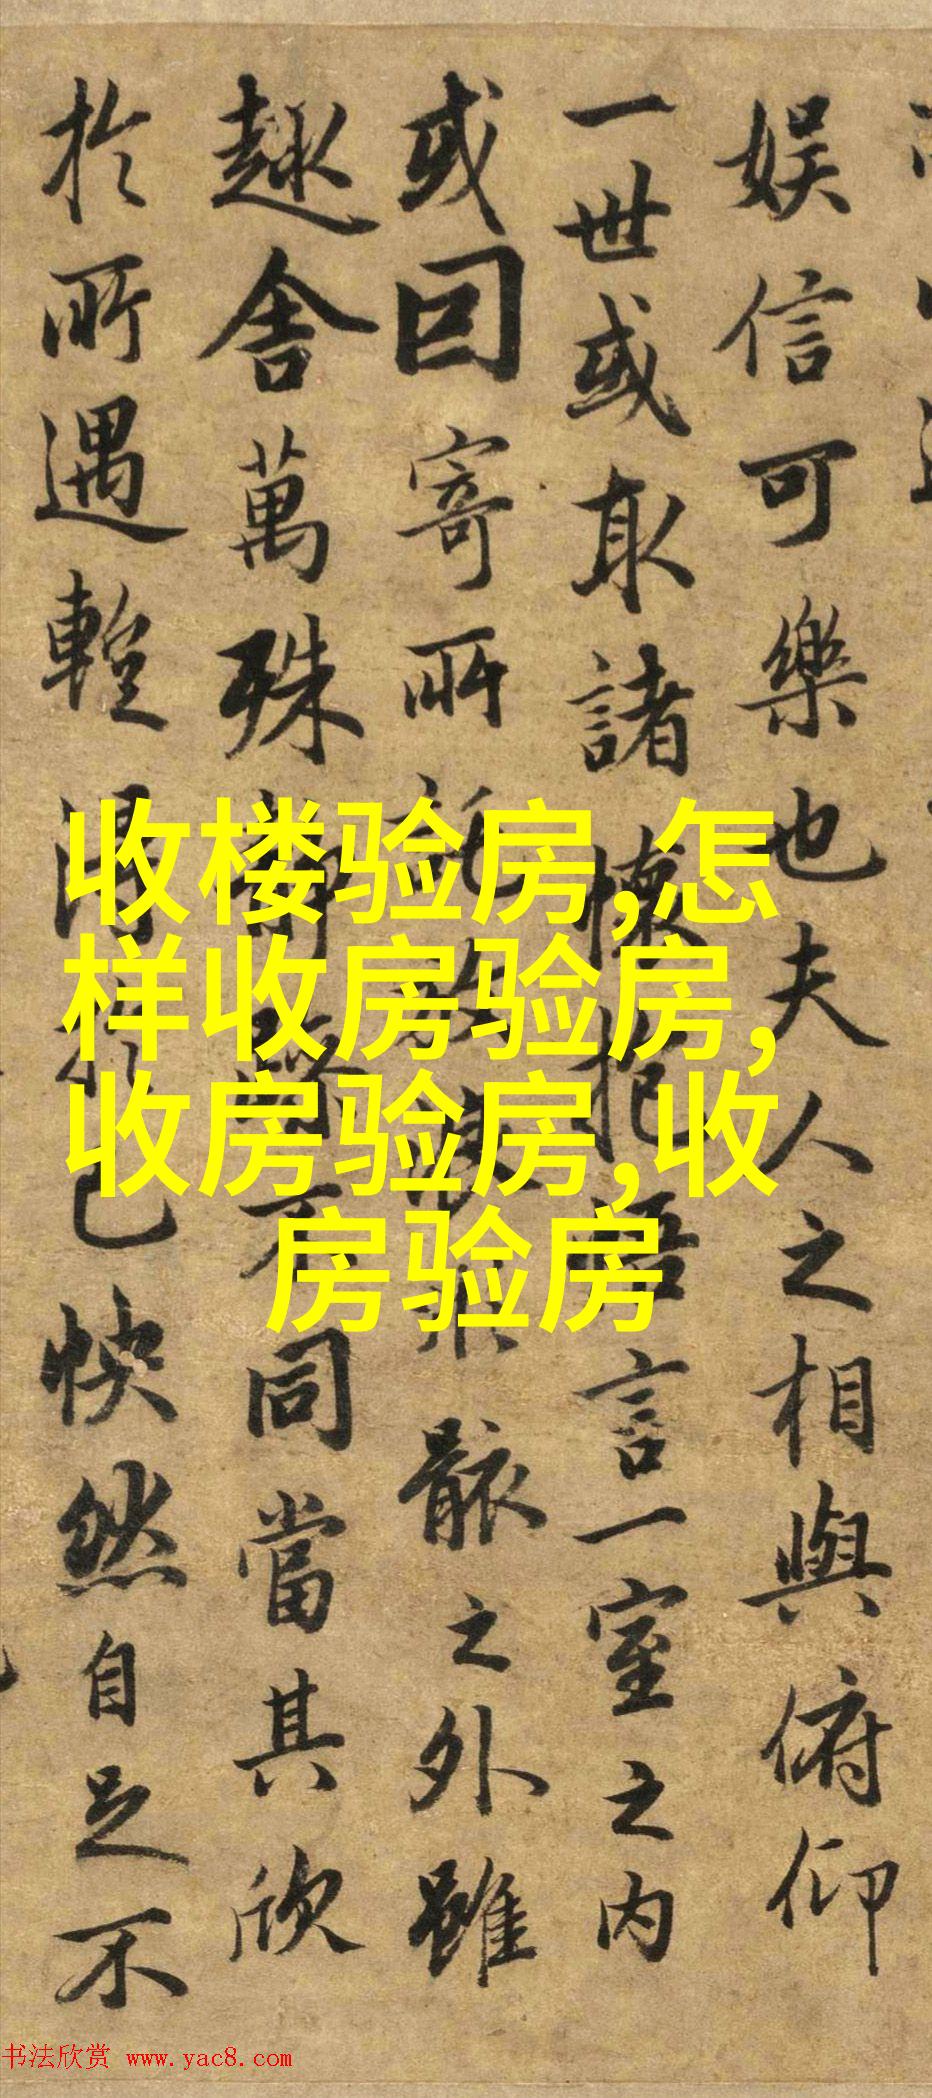 娱信可樂也夫人之相與俯仰
一世或取諸懷抱悟言一室之内
或因寄所託骸之外雖
趣舍萬殊不同當其欣
於所遇蹔得己快然自足不
收楼验房,怎
样收房验房,
收房验房,收
房验房
书法欣赏 www.yac8.com